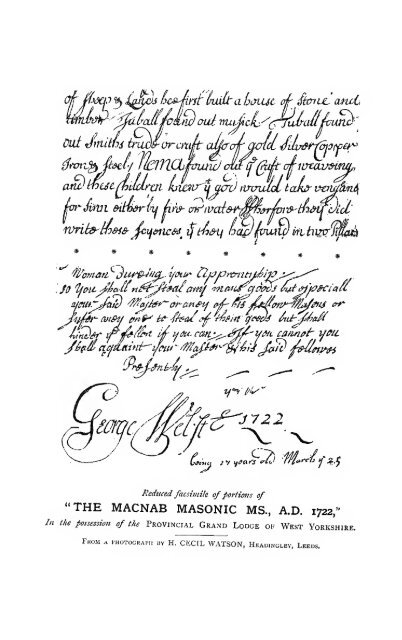 of sheep & Lands hee first built a house of stone and
timber Juball found out musick Tuball found
out Smiths trade or craft also of gold Silver Copper
Iron & steel, Nema found out yͤ Craft of weaveing,
and these Children knew yͭ god would take vengans
for sinn either by fire or water Wherfore they did
write these Scyences yͭ they had found in two Pillars
* * * * * * * *
Woman Dureing your Apprentiship
so You shall not steal any mans goods but especiall
your said Master or aney of his fellow Masons or
suffer aney one to steal of their goods but shall
hinder yͤ fellon if you can. & if you cannot you
shall aquaint your Master & his said fellowes
Presently.
George 1722
being 17 years old March yͤ 25
Reduced facsimile of portions of
"THE MACNAB MASONIC MS., A.D. 1722,"
In the possession of the Provincial Grand Lodge of West Yorkshire.
From a photograph by H. CECIL WATSON, Headingley, Leeds.